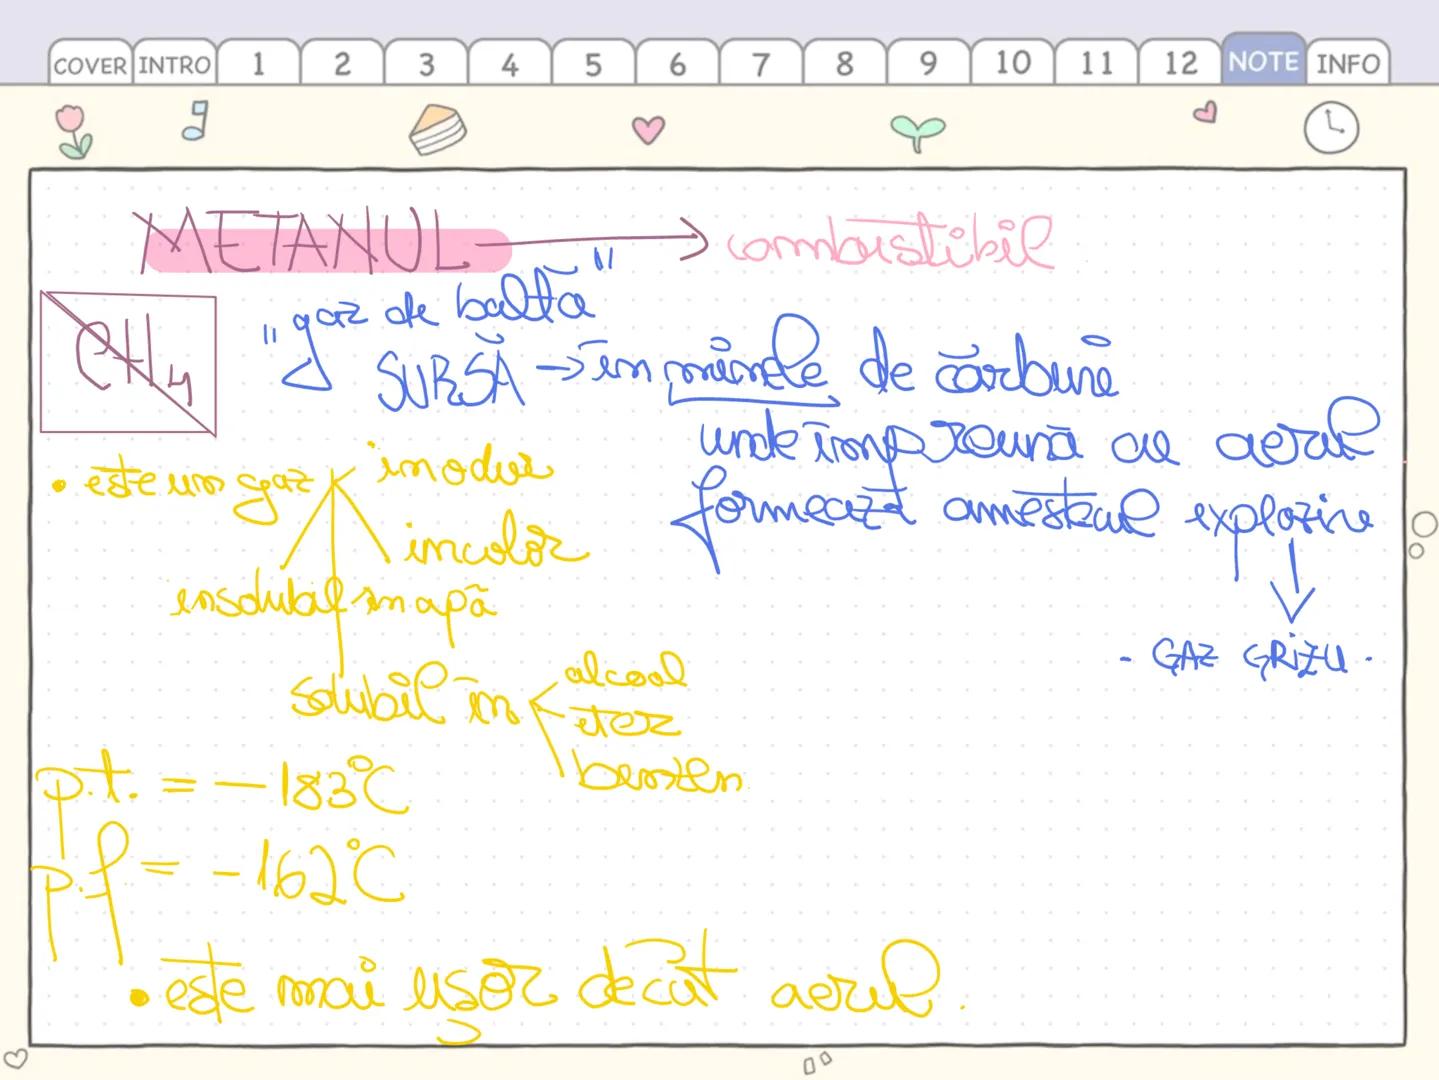 COVER INTRO 1 2 3 4 5 6 7 8 9 10 11 12 NOTE INFO
METANUL → combustibil
"gaz de baltă"
CH4
SURSĂ → în minele de cărbuni
unde împreună cu aerul
formează amestecul explozive
- GAZ GRIZU -
• este un gaz
inodor
incolor
insolubil în apă
solubil în
alcool
eter
benzen
p.t. = -183°C
p.f = -162°C
• este mai ușor decât aerul.